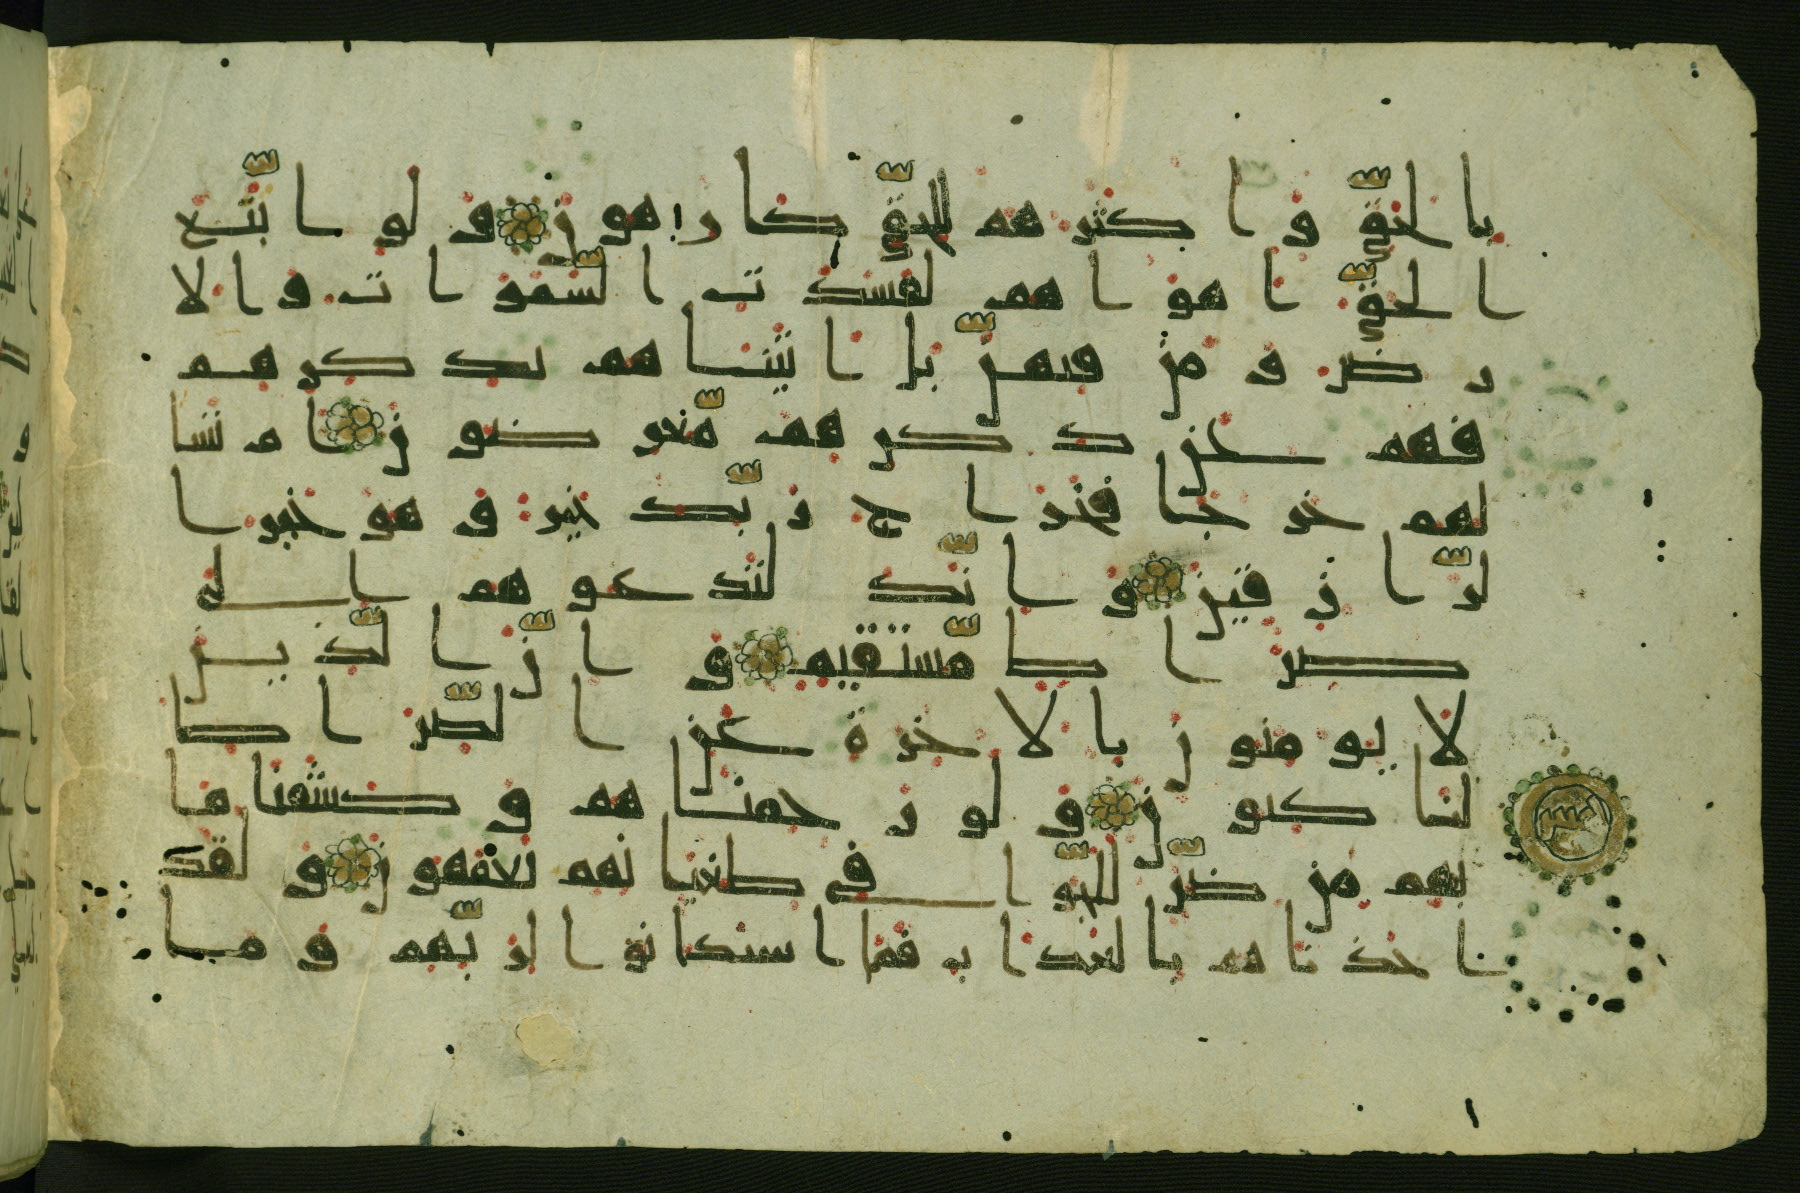 بالحق وأكثرهم للحق كارهون ولو اتبع
الحق أهواهم لفسدت السموات والا
رض ومن فيهن بل أتيناهم بذكرهم
فهم عن ذكرهم معرضون أم تسا
لهم خرجا فخراج ربك خير وهو خير ا
لرازقين وإنك لتدعوهم إلى
صراط مستقيم وإن الذين
لا يومنون بالاخرة عن الصراط
لناكبون ولو رحمناهم وكشفنا ما
بهم من ضر للجوا في طغيانهم يعمهون ولقد
أخذناهم بالعذاب فما استكانوا لربهم وما